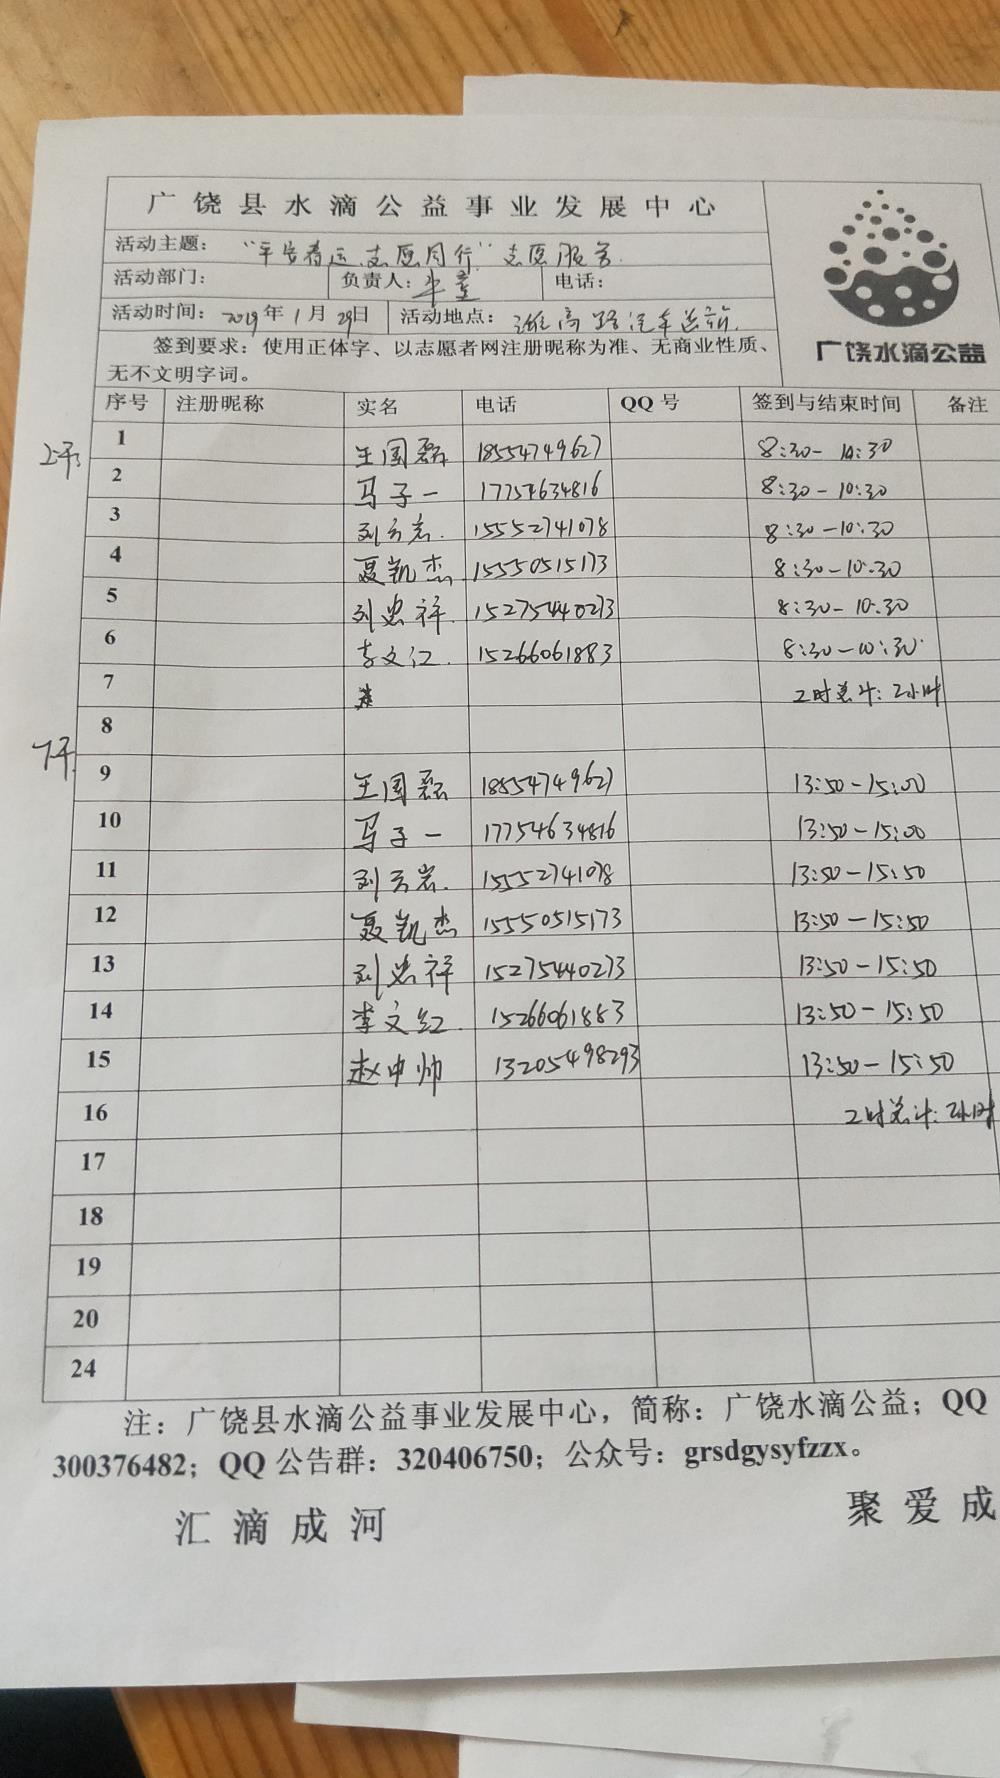 广饶县水滴公益事业发展中心
活动主题："平安春运、志愿同行"志愿服务.
活动部门： 负责人： 电话：
活动时间：2019年1月29日 活动地点：潍高路汽车总站.
广饶水滴公益
签到要求：使用正体字、以志愿者网注册昵称为准、无商业性质、
无不文明字词。
序号 注册昵称 实名 电话 QQ号 签到与结束时间 备注
上午:
1 王国磊 18554749627 8:30-10:30
2 马子一 17754634816 8:30-10:30
3 刘云岩. 15552741078 8:30-10:30
4 聂凯杰 15550515173 8:30-10:30
5 刘忠祥. 15275440273 8:30-10:30
6 李文江. 15266061883 8:30-10:30
7 工时总计:2小时
8
下午.
9 王国磊 18554749627 13:50-15:00
10 马子一 17754634816 13:50-15:00
11 刘云岩. 15552741078 13:50-15:50
12 聂凯杰 15550515173 13:50-15:50
13 刘忠祥 15275440273 13:50-15:50
14 李文红. 15266061883 13:50-15:50
15 赵申帅 13205498293 13:50-15:50
16 工时总计:2小时
17
18
19
20
24
注：广饶县水滴公益事业发展中心，简称：广饶水滴公益；QQ
300376482；QQ公告群：320406750；公众号：grsdgysyfzzx。
汇滴成河 聚爱成